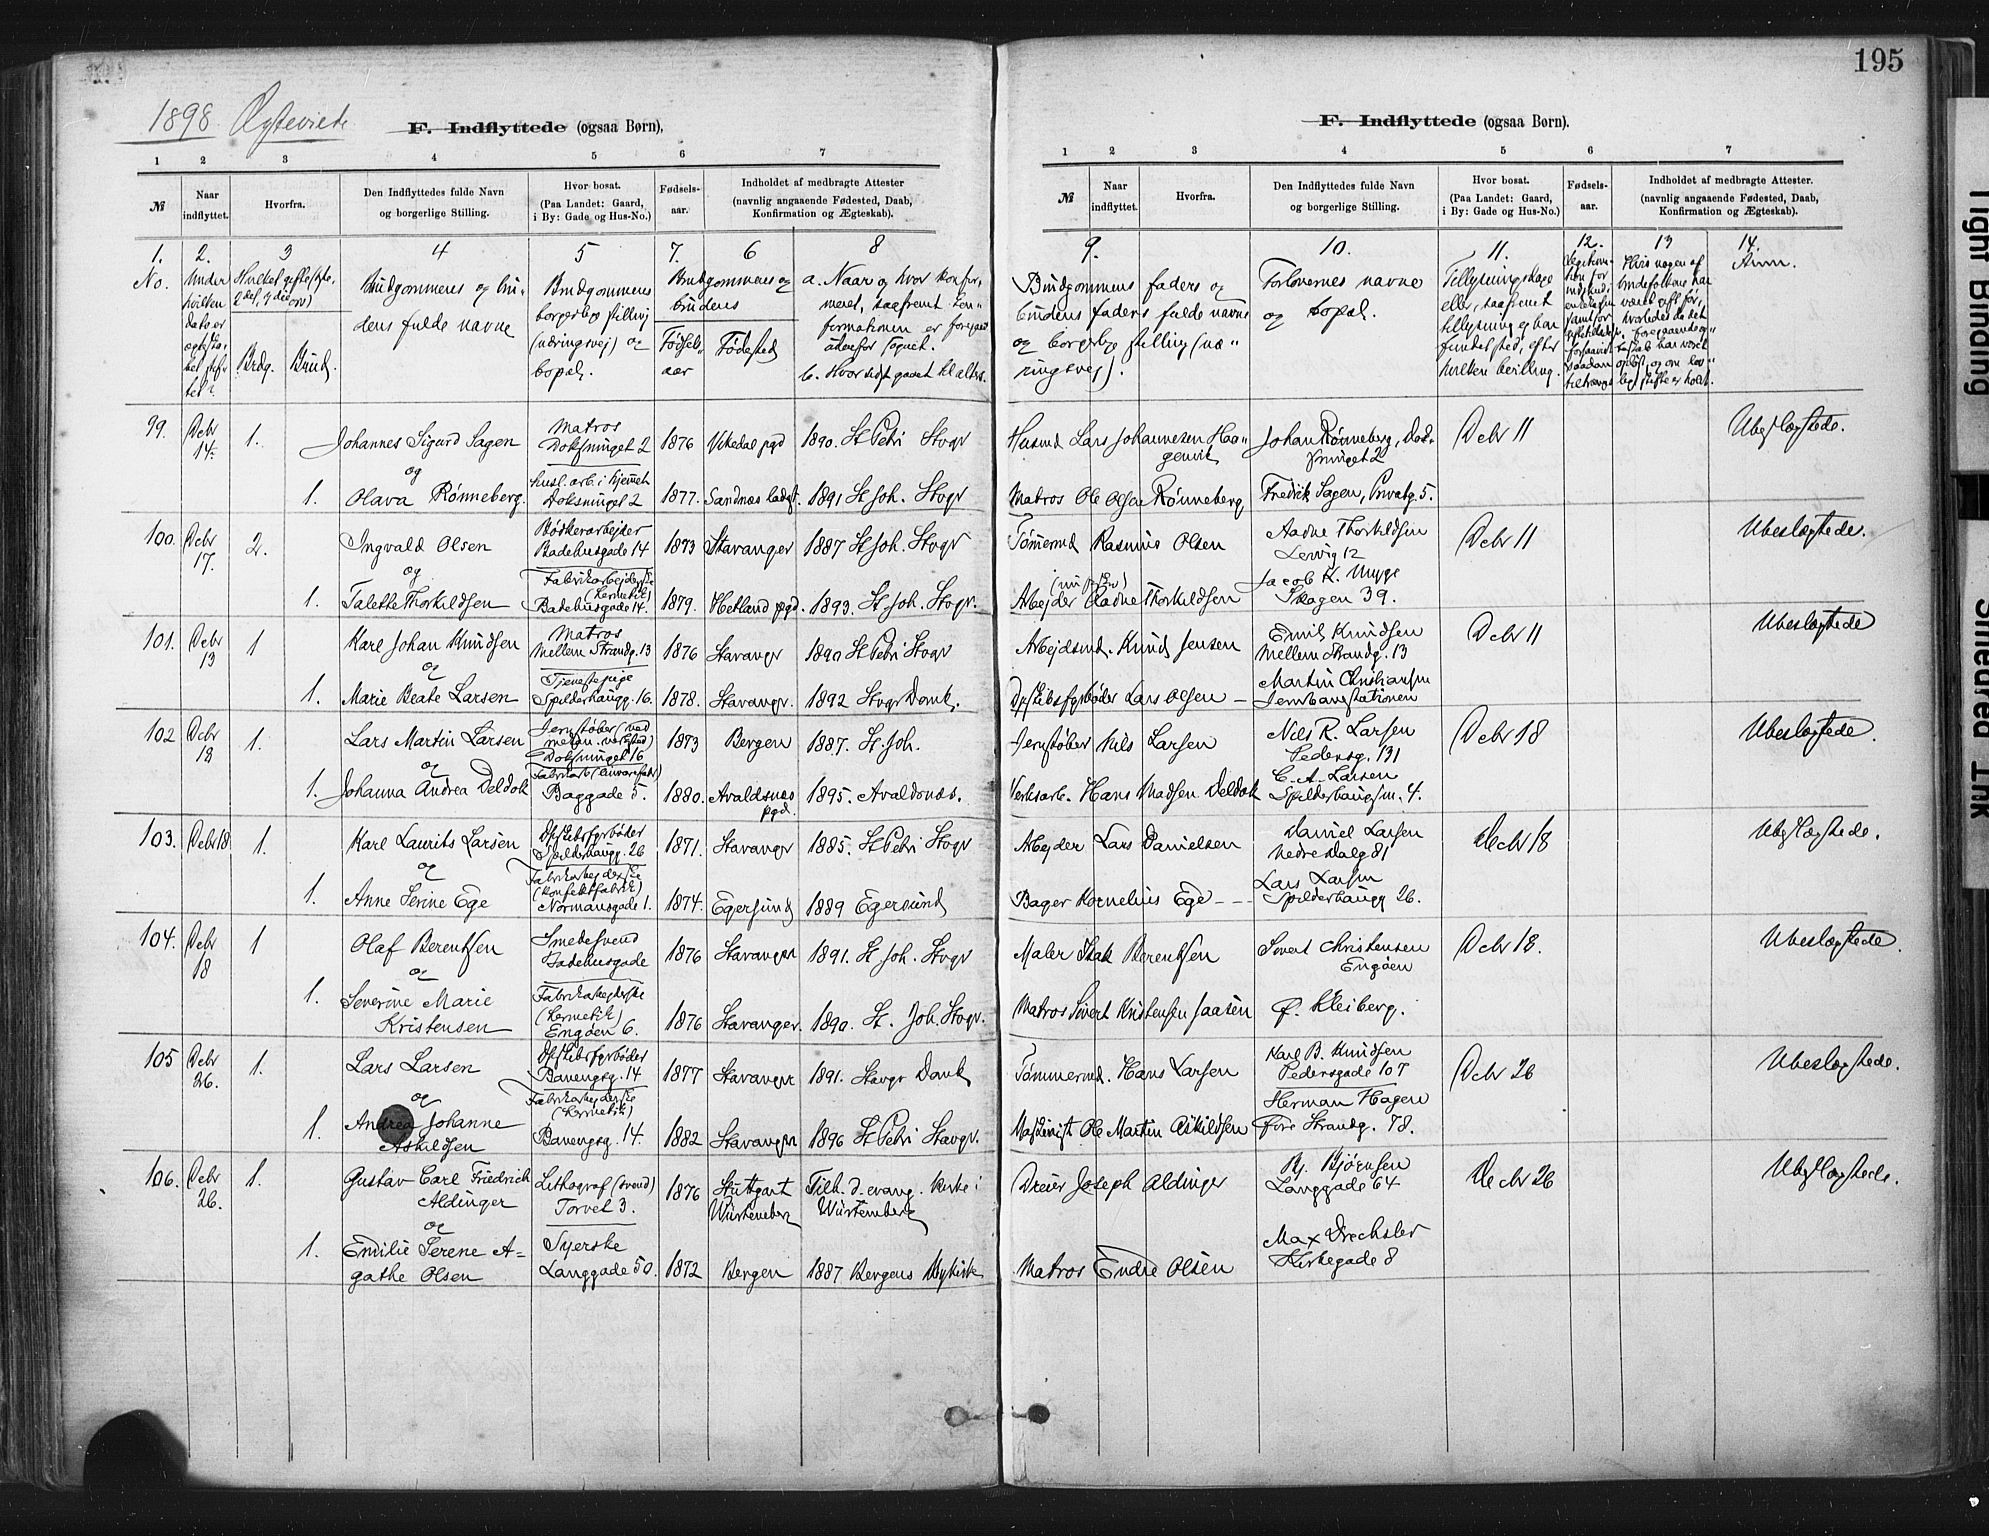 195
1898. Ægteviede
F. Indflyttede (ogsaa Børn).
1 2 3 4 5 6 7
№
Naar indflyttet.
Hvorfra.
Den Indflyttedes fulde Navn og borgerlige Stilling.
Hvor bosat. (Paa Landet: Gaard, i By: Gade og Hus-No.)
Fødsels-aar.
Indholdet af medbragte Attester (navnlig angaaende Fødested, Daab, Konfirmation og Ægteskab).
1. 2. 3 4 5 7. 6 8
No.
Brdg. Brud.
Brudgommens og bru-
dens fulde navne
Brudgommens
borgerlige stilling
(næringsvei) og
bopæl.
Brudgommens og
brudens
Fødsels-
aar
Fødested
a. Naar og hvor konfir-
meret, saafremt kon-
firmationen er foregaaet
udenfor sognet.
99. Decbr 14. 1. Johannes Sigurd Sagen
Matros
Doksmuget 2
1876 Vikedal pgd 1890. St Petri Stvgr
og
1. Olava Rønneberg.
husl. arb. i hjemmet
Doksmuget 2
1877. Sandnes ladest. 1891 St Joh. Stvgr
100. Decbr 17. 2. Ingvald Olsen
Bødkerarbejder
Badehusgade 14
1873 Stavanger 1887 St Joh. Stvgr
og
1. Talette Thorkildsen
Fabrikarbejderske
(Hermetik)
Badehusgade 14.
1879. Hetland pgd. 1893. St Joh. Stvgr.
101. Decbr 13 1 Karl Johan Knudsen
Matros
Mellem Strandg. 13
1876 Stavangr 1890 St Petri Stvgr
og
1. Marie Beate Larsen
Tjenestepige
Spilderhaugg. 16.
1878. Stavangr. 1892 Stvgr Domk.
102 Decbr 18 1. Lars Martin Larsen
Jernstøber (ved
mekan. værksted)
Doksmuget 16
1873 Bergen 1887. St Joh.
og
1. Johanna Andrea Veldok
Baggade 5.
1880. Avaldsnæs pgd. 1895. Avaldsnæs.
103. Decbr 18 1. Karl Laurits Larsen
Dpskibsfyrbøder
Spilderhaugg. 26
1871. Stavangr 1885. St Petri Stvgr
og
1. Anne Serine Ege
Fabrikarbejderske
(Konfektfabrik)
Normansgade 1.
1874. Egersund 1889 Egersund
104. Decbr 18 1 Olaf Berentsen
Smedesvend
Badehusgade
1876 Stavanger 1891. St Joh. Stvgr
og
1. Severine Marie
Kristensen
Fabrikarbejderske
(Hermetik)
Engøen 6.
1876 Stavanger. 1890. St. Joh. Stvgr.
105 Decbr 26. 1. Lars Larsen
Dpskibsfyrbøder
Banengsg. 14
1877 Stavanger 1891. Stvgr Domk
og
1. Andrea Johanne
Askildsen
Fabrikarbejderske
(Hermetik)
Banengsg. 14.
1882 Stavanger 1896 St Petri Stavgr.
106. Decbr 26. 1. Gustav Carl Friedrich
Aldinger
Lithograf (svend)
Torvet 3.
1876 Stuttgart
Würtenberg
Tilh. d. evang. kirke i
Würtemberg
og
1. Emilie Serene A-
gathe Olsen
Syerske
Langgade 50.
1872 Bergen 1887 Bergens Nykirke
F. Indflyttede (ogsaa Børn).
1 2 3 4 5 6 7
№
Naar indflyttet.
Hvorfra.
Den Indflyttedes fulde Navn og borgerlige Stilling.
Hvor bosat. (Paa Landet: Gaard, i By: Gade og Hus-No.)
Fødsels-aar.
Indholdet af medbragte Attester. (navnlig angaaende Fødested, Daab, Konfirmation og Ægteskab).
9. 10. 11. 12. 13 14.
Brudgommens faders og
brudens faders fulde navne
og borgerlige stilling (næ-
ringsvej).
Forlovernes navne
og bopæl.
Tillysningsdage
eller, saafremt
tillysning ej har
fundet sted, efter
hvilken bevilling.
Anm.
Husmd Lars Johannesen Haa-
genvik
Johan Rønneberg, Dok-
smuget 2
Decbr 11 Ubeslægtede.
Matros Ole Olsen Rønneberg,
Fredrik Sagen, Privatg. 5.
Tømmermd Rasmus Olsen
Aadne Thorkildsen
Lervig 12
Decbr 11 Ubeslægtede.
Arbejder Aadne Thorkildsen
Jacob K. Mygge
Skagen 39.
Arbejdsmd. Knud Jensen
Emil Knudsen
Mellem Strandg. 13
Decbr 11 Ubeslægtede
Dpskibsfyrbøder Lars Olsen
Martin Christiansen
Jernbanestationen
Jernstøber Nils Larsen
Nils R. Larsen
Pedersg. 131
Decbr 18 Ubeslægtede.
Verksarb. Hans Madsen Veldok
C. A. Larsen
Spilderhaugsm. 4.
Arbejder Lars Danielsen
Daniel Larsen
Nedre Dalg 81
Decbr 18 Ubeslægtede.
Bager Kornelius Ege
Lars Larsen
Spilderhaugg 26.
Maler Isak Berentsen
Sivert Christensen
Engøen
Decbr 18. Ubeslægtede.
Matros Sivert Kristensen Jaasen
F. Kleiberg.
Tømmermd. Hans Larsen
Karl B. Knudsen
Pedersgade 107
Decbr 26 Ubeslægtede.
Maskinist Ole Martin Askildsen
Herman Hagen
Øvre Strandg. 78.
Dreier Joseph Aldinger
Bj. Bjørnsen
Langgade 64
Decbr 26 Ubeslægtede.
Matros Endre Olsen
Max Drechsler
Kirkegade 8
Tight Binding
Smeared Ink